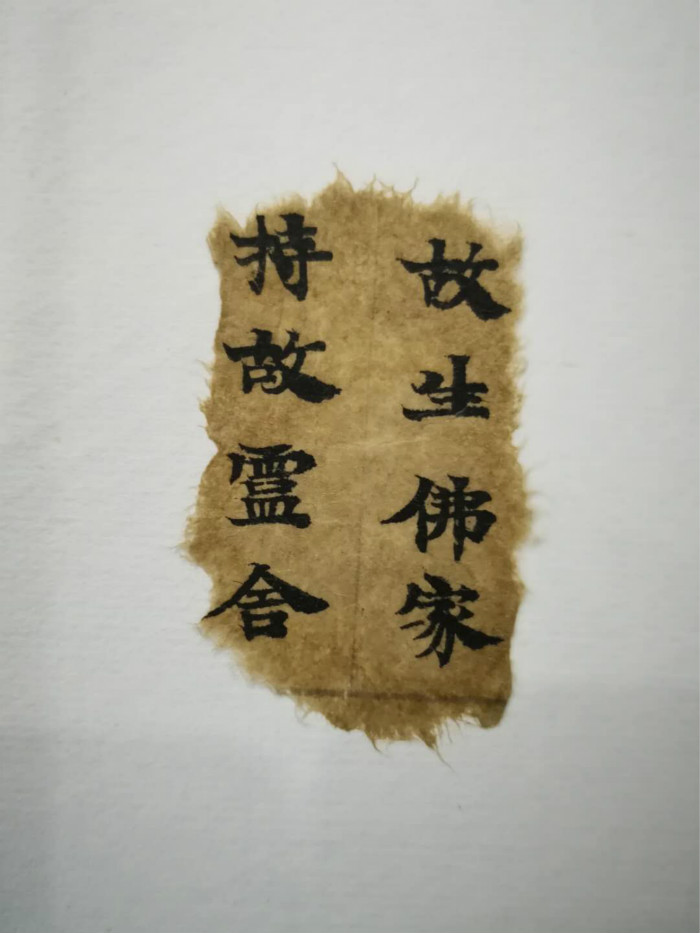 故生佛家
持故霊舍